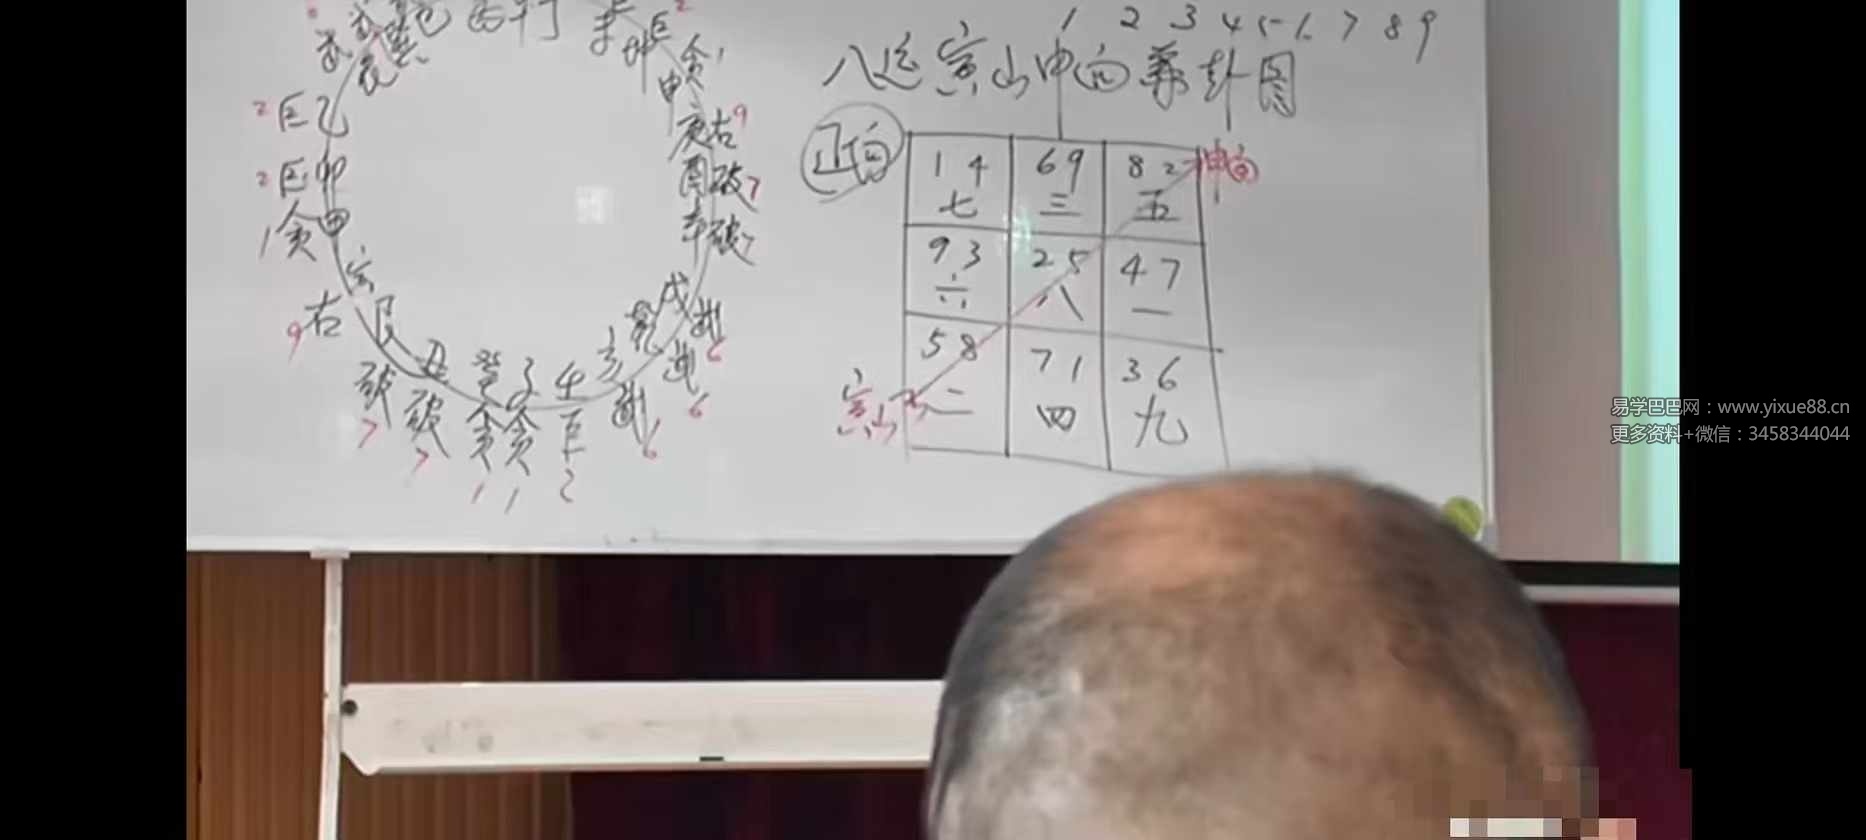 1 2 3 4 5 6 7 8 9
八运寅山申向替卦图
正向
14 69 82 申向
七 三 五
93 25 47
六 八 一
58 71 36
寅山 二 四 九
2 巨乙
2 巨卯
1 贪甲
寅
右 艮
9
破 丑 癸 子 壬 亥 乾 戌 武
7 破 贪 贪 巨 武 武 6
7 1 1 2 6 6
坤 巨 2
申 贪 1
庚 右 9
酉 破 7
辛 破 7
易学巴巴网：www.yixue88.cn
更多资料+微信：3458344044